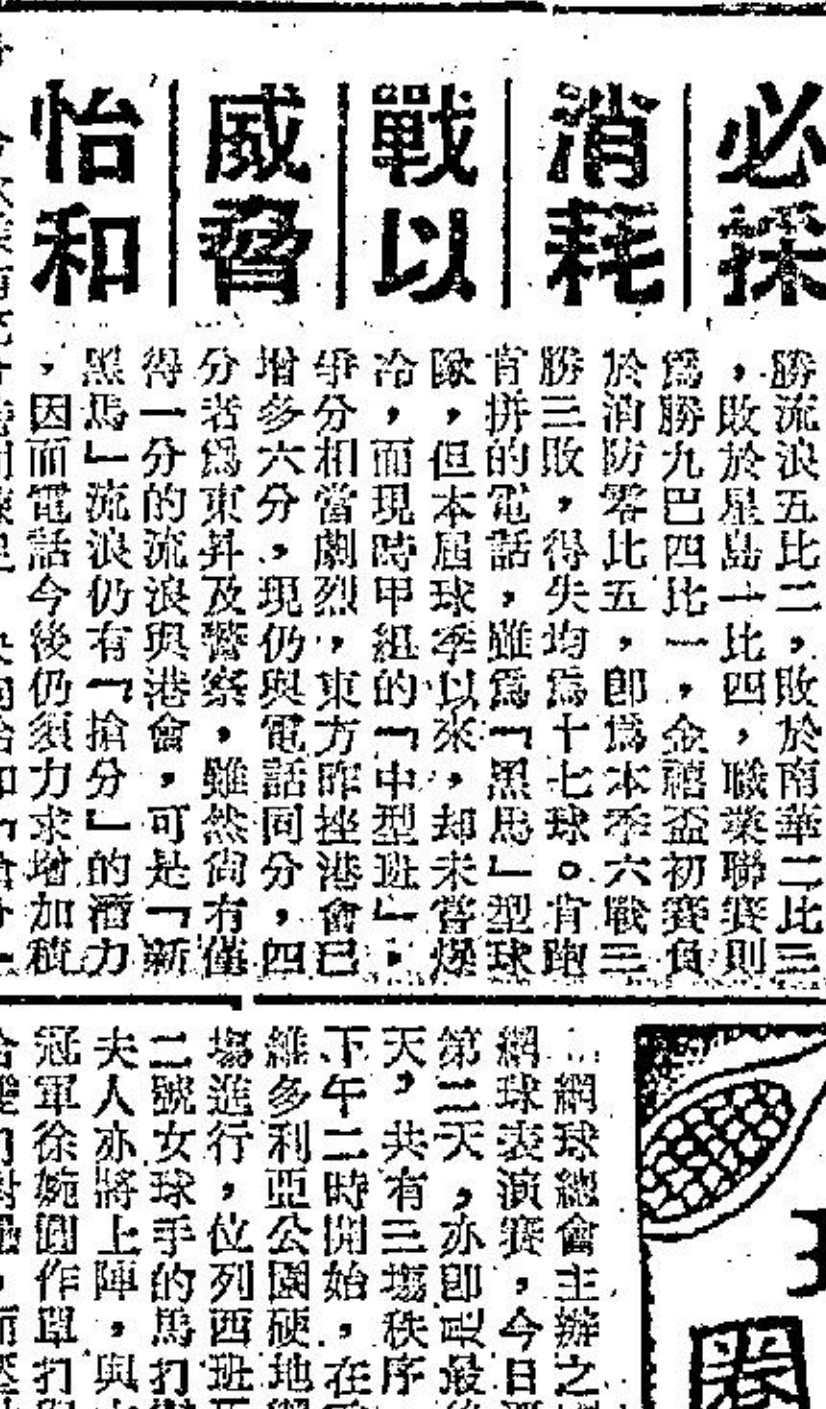 必採
消耗
戰以
威脅
怡和
勝流浪五比二，敗於南華二比三
，敗於星島一比四，職業聯賽則
爲勝九巴四比一，金禧盃初賽負
於消防零比五，卽爲本季六戰三
勝三敗，得失均爲十七球。肯跑
肯拼的電話，雖爲「黑馬」型球
隊，但本屆球季以來，却未嘗爆
冷，而現時甲組的「中型班」，
爭分相當劇烈，東方昨挫港會已
增多六分，現仍與電話同分，四
分者爲東昇及警察，雖然尙有僅
得一分的流浪與港會，可是「新
黑馬」流浪仍有「搶分」的潛力
，因而電話今後仍須力求增加積
網球總會主辦之
網球表演賽，今日
第二天，亦卽是最
天，共有三場秩序
下午二時開始，在
維多利亞公園硬地
場進行，位列西班
二號女球手的馬打
夫人亦將上陣，與
冠軍徐婉圓作單打